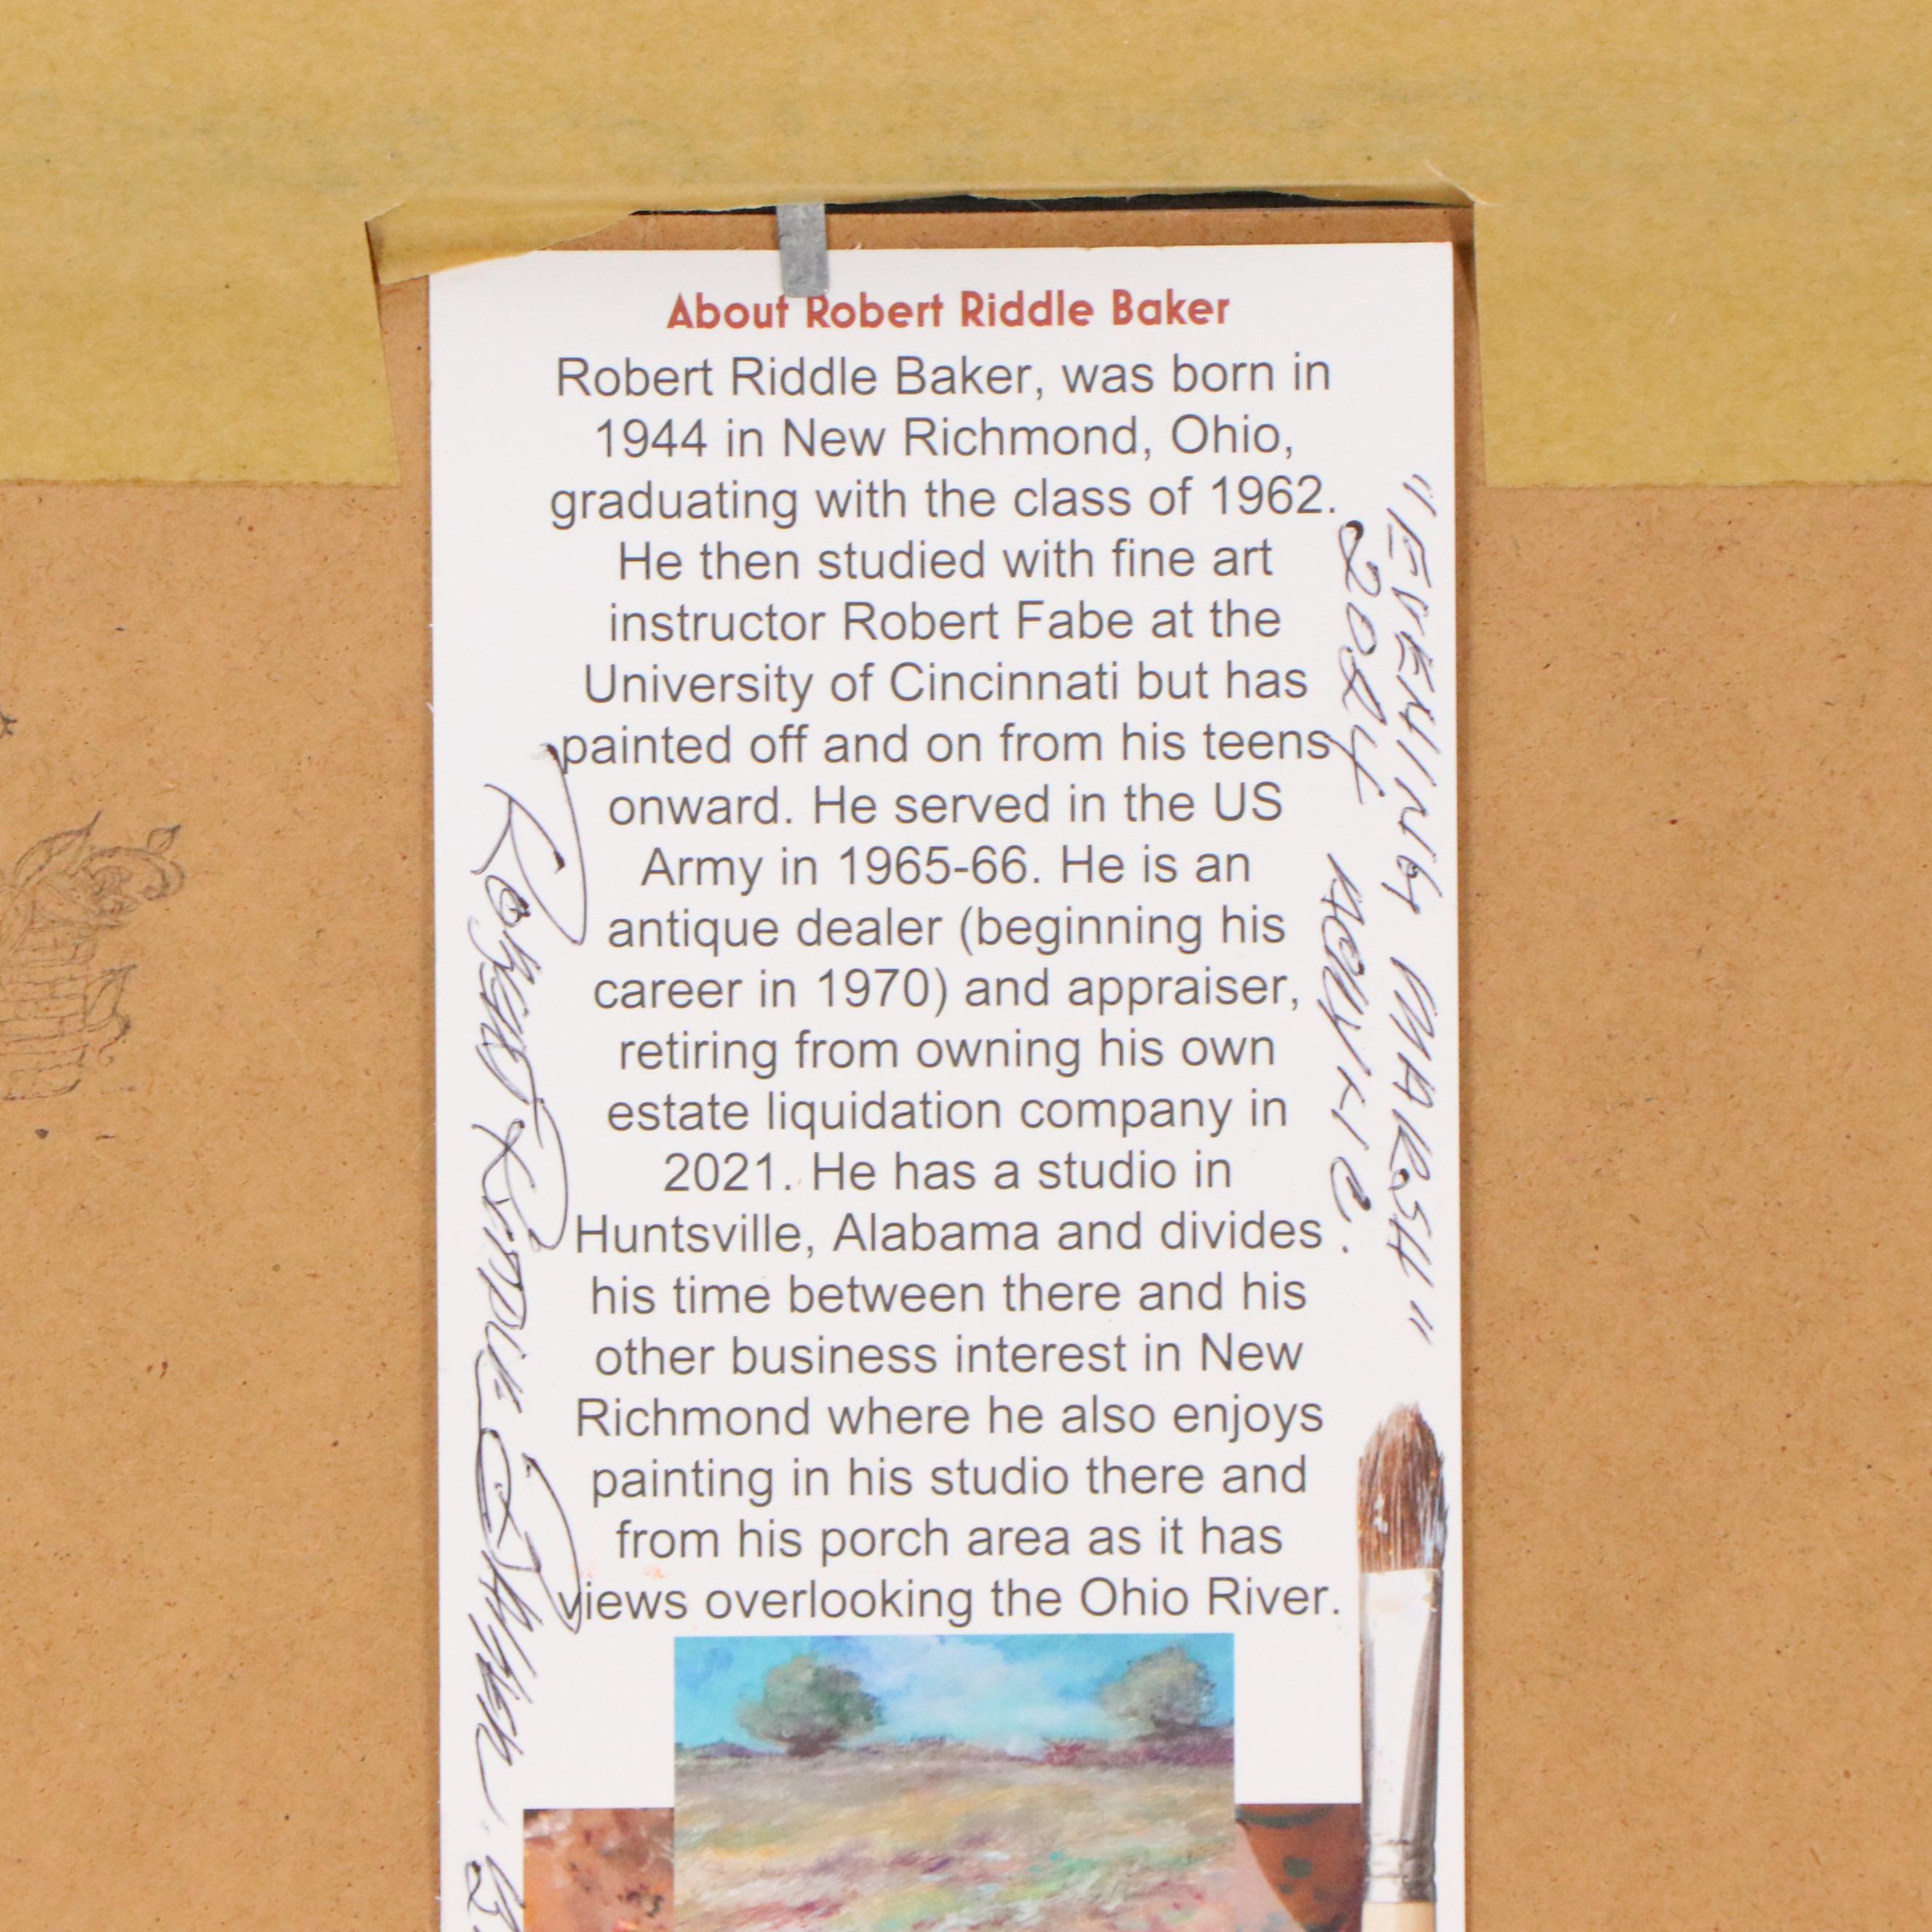 About Robert Riddle Baker
Robert Riddle Baker, was born in
1944 in New Richmond, Ohio,
graduating with the class of 1962.
He then studied with fine art
instructor Robert Fabe at the
University of Cincinnati but has
painted off and on from his teens
onward. He served in the US
Army in 1965-66. He is an
antique dealer (beginning his
career in 1970) and appraiser,
retiring from owning his own
estate liquidation company in
2021. He has a studio in
Huntsville, Alabama and divides
his time between there and his
other business interest in New
Richmond where he also enjoys
painting in his studio there and
from his porch area as it has
views overlooking the Ohio River.
"EVENING MARSH"
2024
Robert Riddle